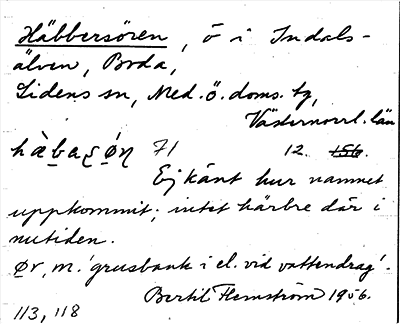 Häbbersören, ö i Indals-
älven, Boda,
Lidens sn, Med. ö. doms. tg,
Västernorrl. län
71 12. 156.
Ej känt hur namnet
uppkommit; intet härbre där i
nutiden.
ør, m. 'grusbank i el. vid vattendrag'.
Bertil Flemström 1956.
113, 118